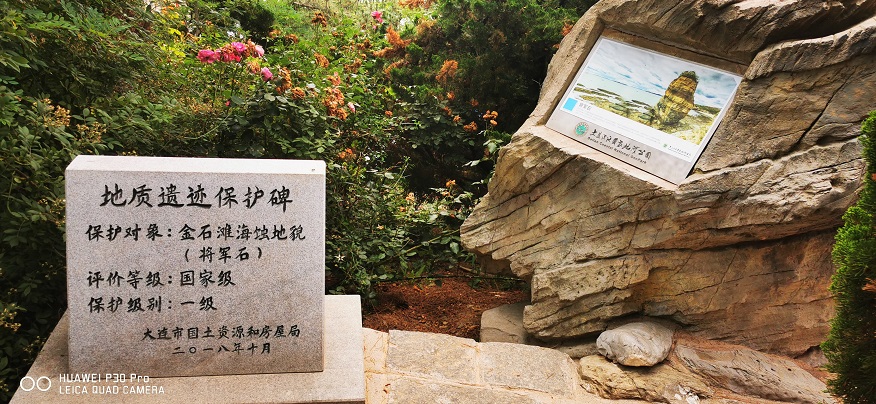 地质遗迹保护碑
保护对象：金石滩海蚀地貌
（将军石）
评价等级：国家级
保护级别：一级
大连市国土资源和房屋局
二〇一八年十月
HUAWEI P30 Pro
LEICA QUAD CAMERA